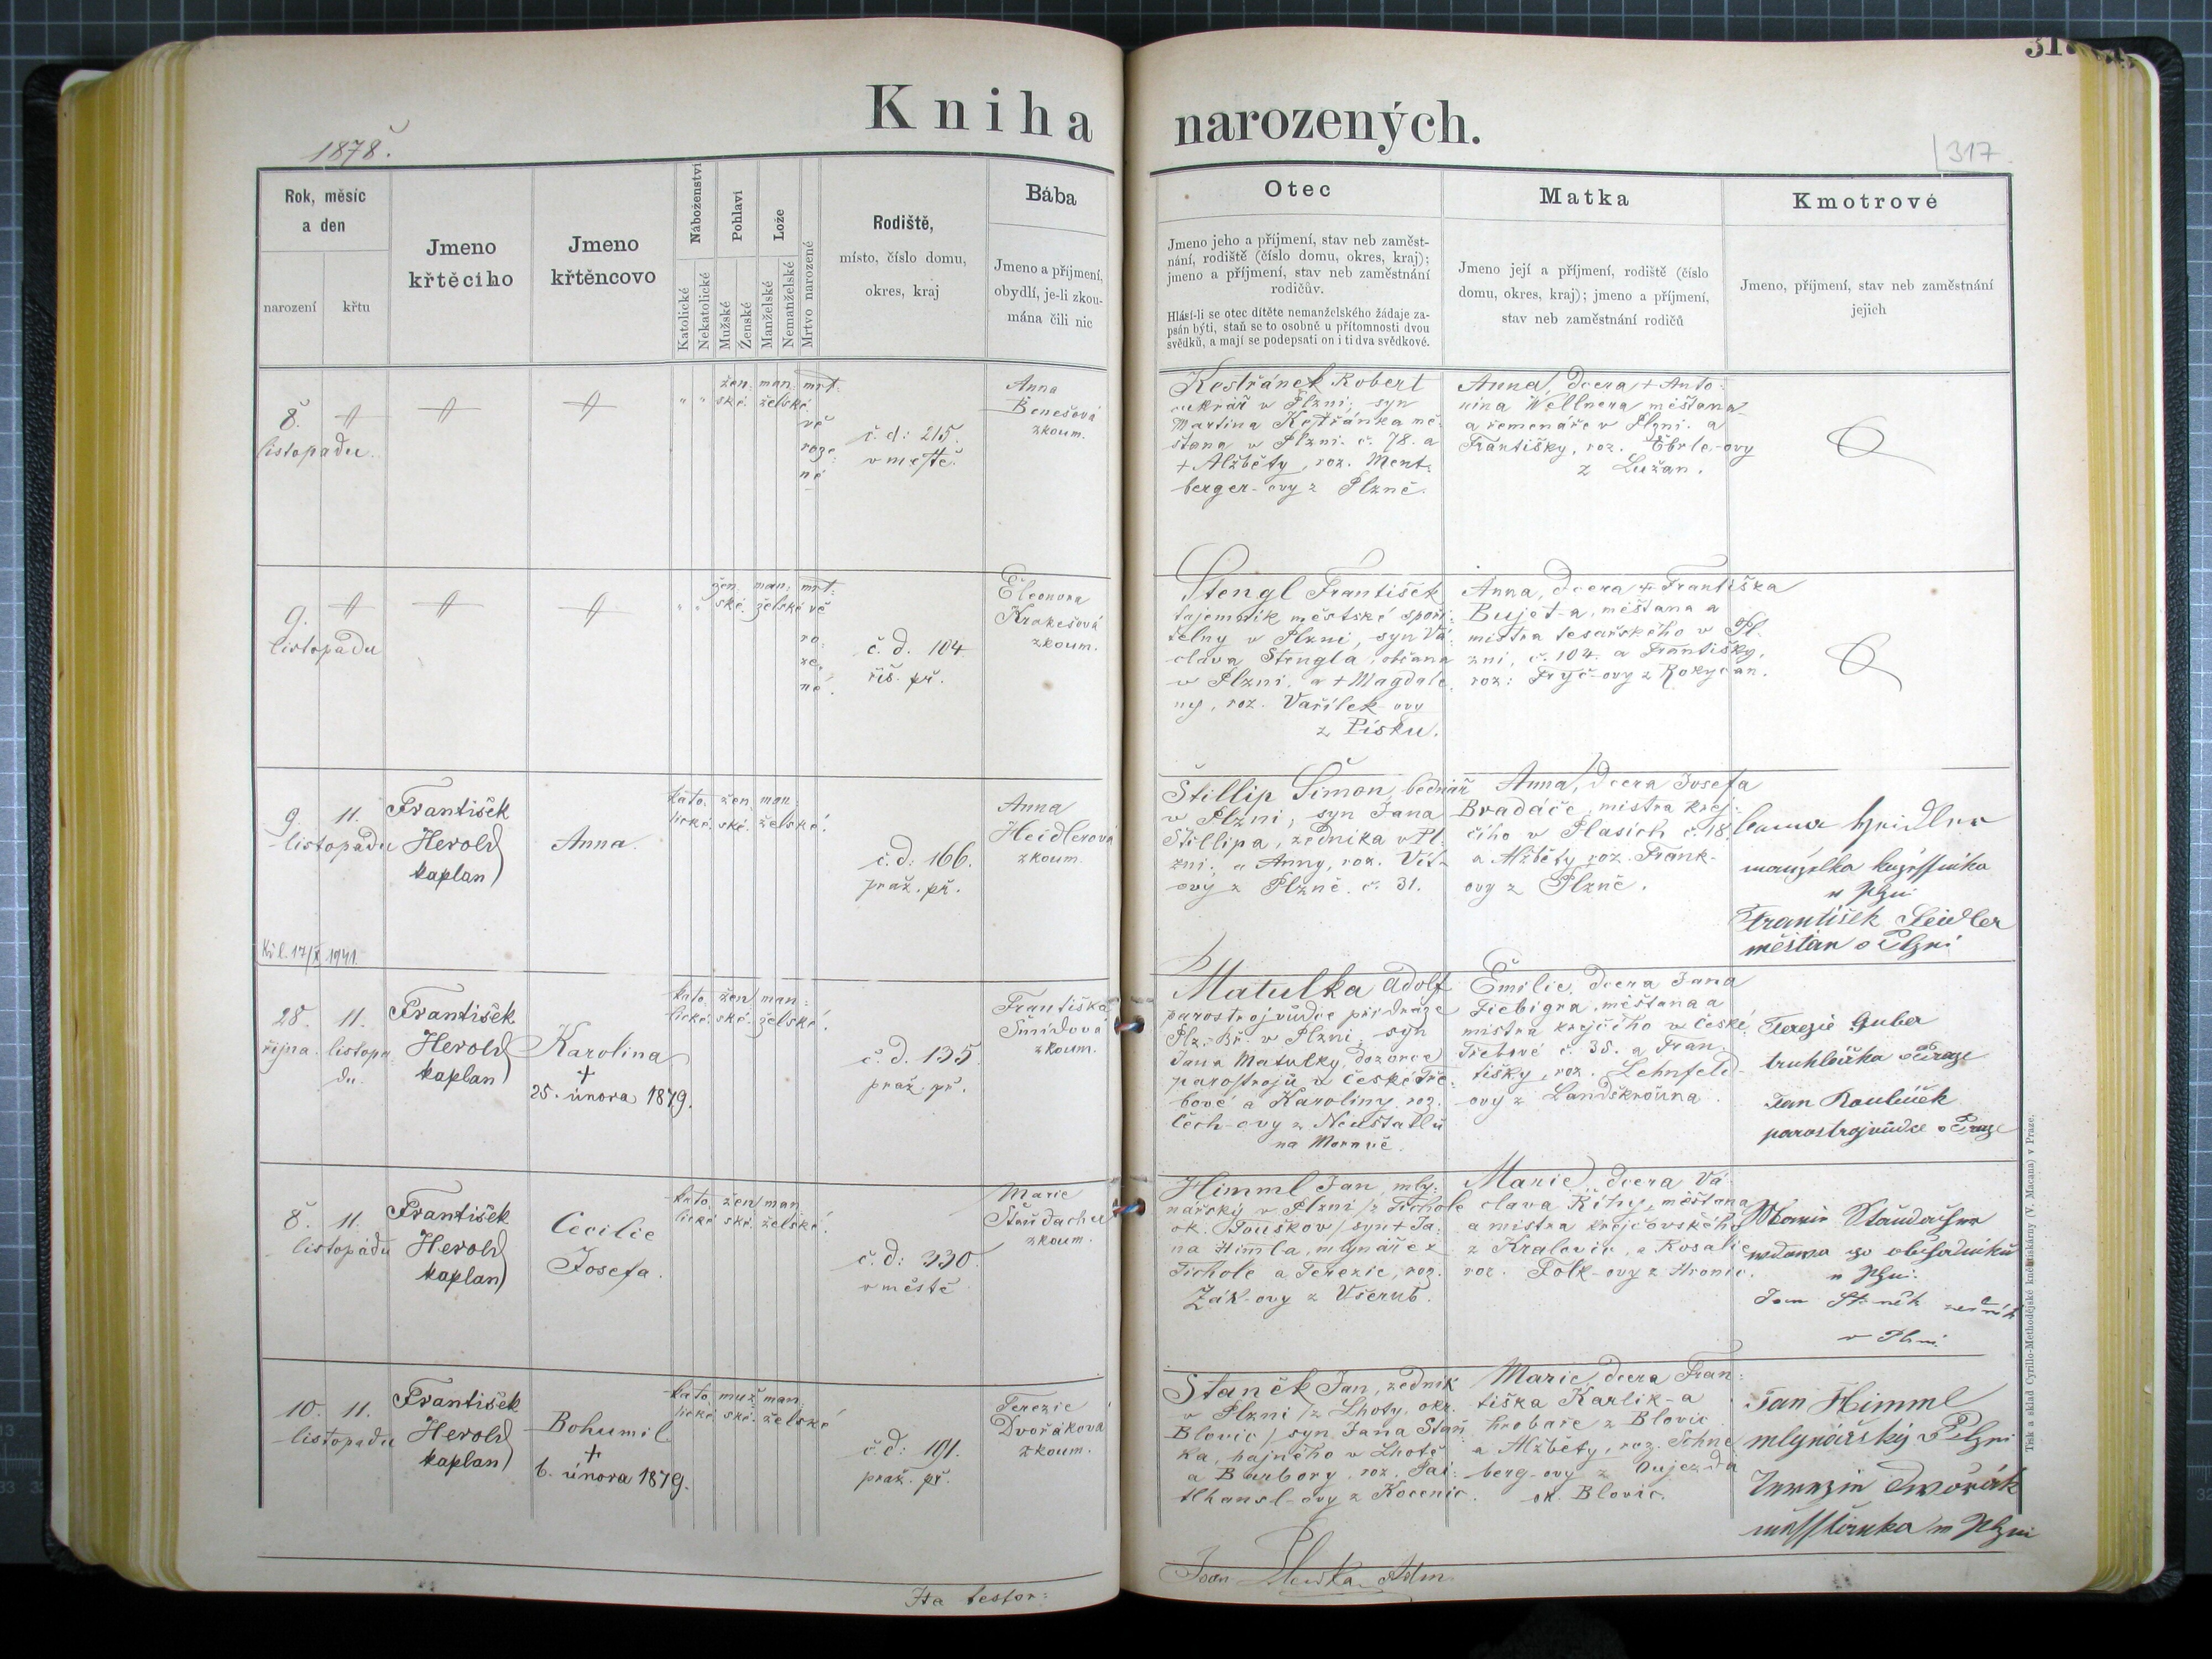 Kniha narozených.
1878.
317
Rok, měsíc
a den
narození
křtu
Jmeno
křtěcího
Jmeno
křtěncovo
Náboženství
Katolické
Nekatolické
Pohlaví
Mužské
Ženské
Lože
Manželské
Nemanželské
Mrtvo narozené
Rodiště,
místo, číslo domu,
okres, kraj
Bába
Jmeno a příjmení,
obydlí, je-li zkou-
mána čili nic
Otec
Jmeno jeho a příjmení, stav neb zaměst-
nání, rodiště (číslo domu, okres, kraj);
jmeno a příjmení, stav neb zaměstnání
rodičův.
Hlásí-li se otec dítěte nemanželského žádaje za-
psán býti, staň se to osobně u přítomnosti dvou
svědků, a mají se podepsati on i ti dva svědkové.
Matka
Jmeno její a příjmení, rodiště (číslo
domu, okres, kraj); jmeno a příjmení,
stav neb zaměstnání rodičů
Kmotrové
Jmeno, příjmení, stav neb zaměstnání
jejich
8.
listopadu.
žen. man. mrt.
ské. želské.
vě
roze
né
č. d: 215.
v městě.
Anna
Benešová
zkoum.
Kestřánek Robert
cukrář v Plzni, syn
Martina Kestřánka mě-
šťana v Plzni. č. 78. a
+ Alžběty, roz. Ment-
berger-ovy z Plzně.
Anna, dcera + Anto-
nína Wellnera měšťana
a řemenáře v Plzni. a
Františky, roz. Eberle-ovy
z Lužan.
9.
listopadu
žen. man. mrt.
ské. želské vě
ro
ze,
né.
č. d. 104
říš. př.
Eleonora
Krakešová
zkoum.
Stengl František
tajemník městské spoři-
telny v Plzni, syn Vá-
clava Stengla, občana
v Plzni, a + Magdale
ny, roz. Vařílek-ovy
z Písku.
Anna, dcera + Františka
Bujet-a, měšťana a
mistra tesařského v Pl-
zni, č. 104. a Františky,
roz: Fryč-ovy z Rokycan.
9. 11.
listopadu
František
Herold
kaplan
Anna.
kato. žen. man.
lické. ské. želské.
č. d: 166.
praž. př.
Anna
Heidlerová
zkoum.
Štillip Šimon, bednář
v Plzni, syn Jana
Štillipa, zedníka v Pl-
zni. a Anny, roz. Vít-
ovy z Plzně. č. 31.
Anna, dcera Josefa
Bradáče, mistra krej-
čího v Plasích č. 18.
a Alžběty roz. Frank-
ovy z Plzně.
Anna Heidler
manželka
v Plzni
František Heidler
měšťan v Plzni
1941.
28. 11.
října. listopa-
du.
František
Herold
kaplan
Karolina
+
25. února 1879.
kato. žen. man.
lické. ské. želské.
č. d. 135
praž. př.
Františka
Šmídová
zkoum.
Matulka Adolf
parostrojvůdce při dráze
Plz.-Bř. v Plzni, syn
Jana Matulky, dozorce
parostrojů v české Tře-
bové a Karoliny roz.
Čech-ovy z Neustadlů
na Moravě.
Emilie, dcera Jana
Fiebigra, měšťana a
mistra krejčího v české
Třebové č. 35. a Fran-
tišky, roz. Lehnfeld-
ovy z Landškrouna.
Terezie Guber
truhlářka v Praze
Jan Roubíček
parostrojvůdce v Praze
8. 11.
listopadu
František
Herold
kaplan
Cecilie
Josefa.
kato. žen. man.
lické. ské. želské.
č. d: 330.
v městě
Marie
Štaudacher
zkoum.
Himml Jan, mly-
nářský v Plzni /z Tichole
ok. Touškov/ syn + Ja-
na Himla, mlynáře z
Tichole a Terezie, roz.
Žák-ovy z Všerub.
Marie, dcera Vá-
clava Říhy, měšťana
a mistra krejčovského
z Kralovic, a Rosalie
roz. Folk-ovy z Hronic.
Marie Staudacher
wdowa po
v Plzni.
Jan
v Plzni
10. 11.
listopadu
František
Herold
kaplan
Bohumil
+
6. února 1879.
kato. muž. man.
lické. ské. želské
č. d: 191.
praž. př.
Terezie
Dvořáková
zkoum.
Staněk Jan, zedník
v Plzni /z Lhoty, okr.
Blovic/ syn Jana Staň-
ka, hajného v Lhotě
a Barbory, roz. Tai-
tlhansl-ovy z Kocenic.
Marie, dcera Fran-
tiška Karlík-a
hrobaře z Blovic
a Alžběty, roz. Schne
berg-ovy z Oujezda
ok. Blovic.
Jan Himml
mlynářský v Plzni
Terezie Dwořák
v Plzni
Ita testor:
Tisk a sklad Cyrillo-Methodějské knihtiskárny (V. Macana) v Praze.